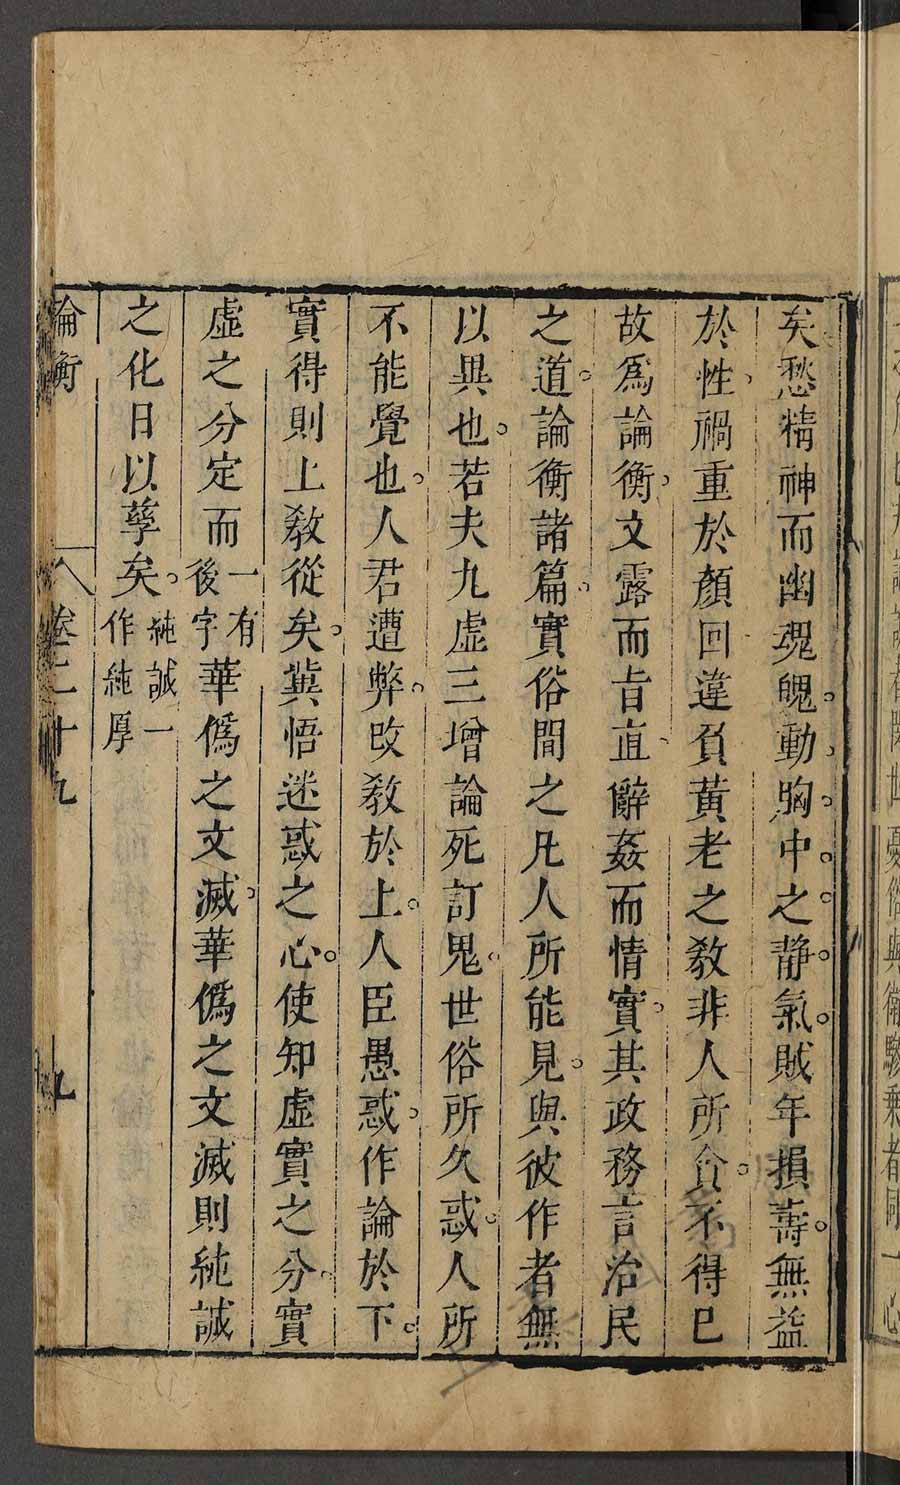 矣愁精神而幽魂魄動胸中之靜氣賊年損壽無益
於性禍重於顏回違負黃老之教非人所貪不得已
故爲論衡文露而旨直辭姦而情實其政務言治民
之道論衡諸篇實俗間之凡人所能見與彼作者無
以異也若夫九虛三增論死訂鬼世俗所久惑人所
不能覺也人君遭弊改教於上人臣愚惑作論於下
實得則上教從矣兾悟迷惑之心使知虛實之分實
虛之分定而一有後字華僞之文滅華僞之文滅則純誠
之化日以孳矣純誠一作純厚
論衡 卷二十九 九